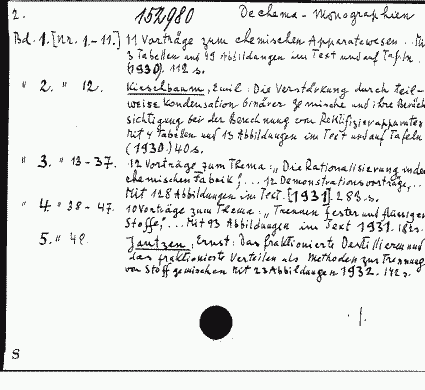 2. 152980 Dechema-Monographien
Bd. 1. [Nr. 1.-11.] 11 Vorträge zum chemischen Apparatewesen... Mit
3 Tabellen und 49 Abbildungen im Text und auf Tafeln.
(1930). 112 S.
" 2. " 12. Kirschbaum, Emil: Die Verstärkung durch teil-
weise Kondensation binärer Gemische und ihre Berück-
sichtigung bei der Berechnung von Rektifizierapparaten
mit 4 Tabellen und 13 Abbildungen im Text und auf Tafeln
(1930.) 40 S.
" 3. " 13-37. 12 Vorträge zum Thema: "Die Rationalisierung in der
chemischen Fabrik", ... 12 Demonstrationsvorträge, ..
Mit 128 Abbildungen im Text. [1931]. 283. S.
" 4. " 38-47. 10 Vorträge zum Thema: "Trennen fester und flüssiger
Stoffe", .. Mit 93 Abbildungen im Text 1931.
5. " 48. Jantzen, Ernst: Das fraktionierte Destillieren und
das fraktionierte Verteilen als Methoden zur Trennung
von Stoffgemischen Mit 23 Abbildungen 1932. 142 S.
S